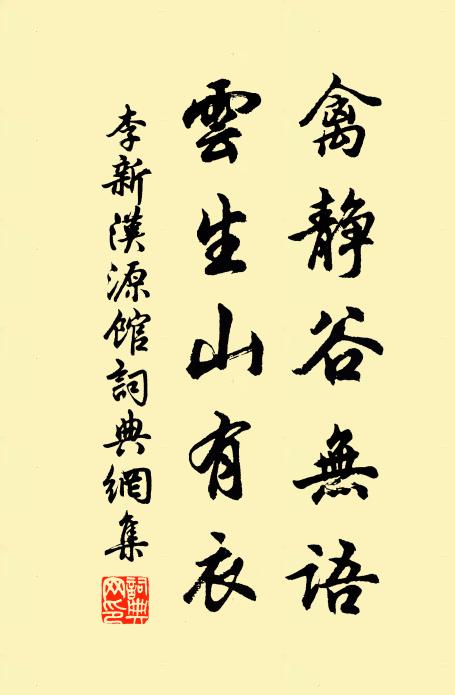 禽静谷無語
雲生山有衣
李新漢源館詞典網集
詞典
网印